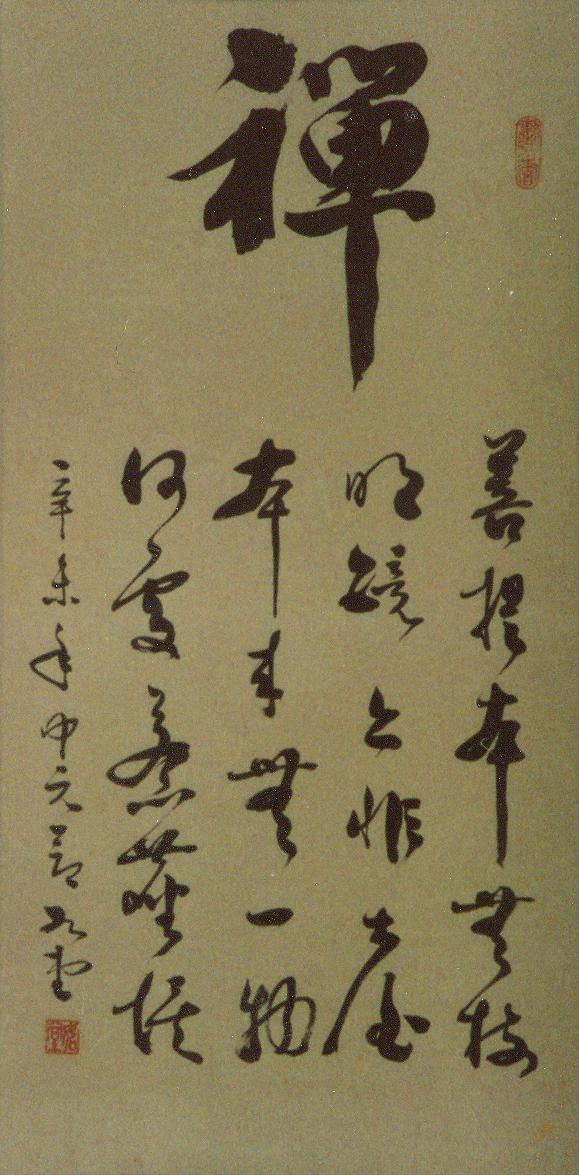 禪
菩提本無樹
明鏡亦非臺
本來無一物
何處惹塵埃
辛未年中元節